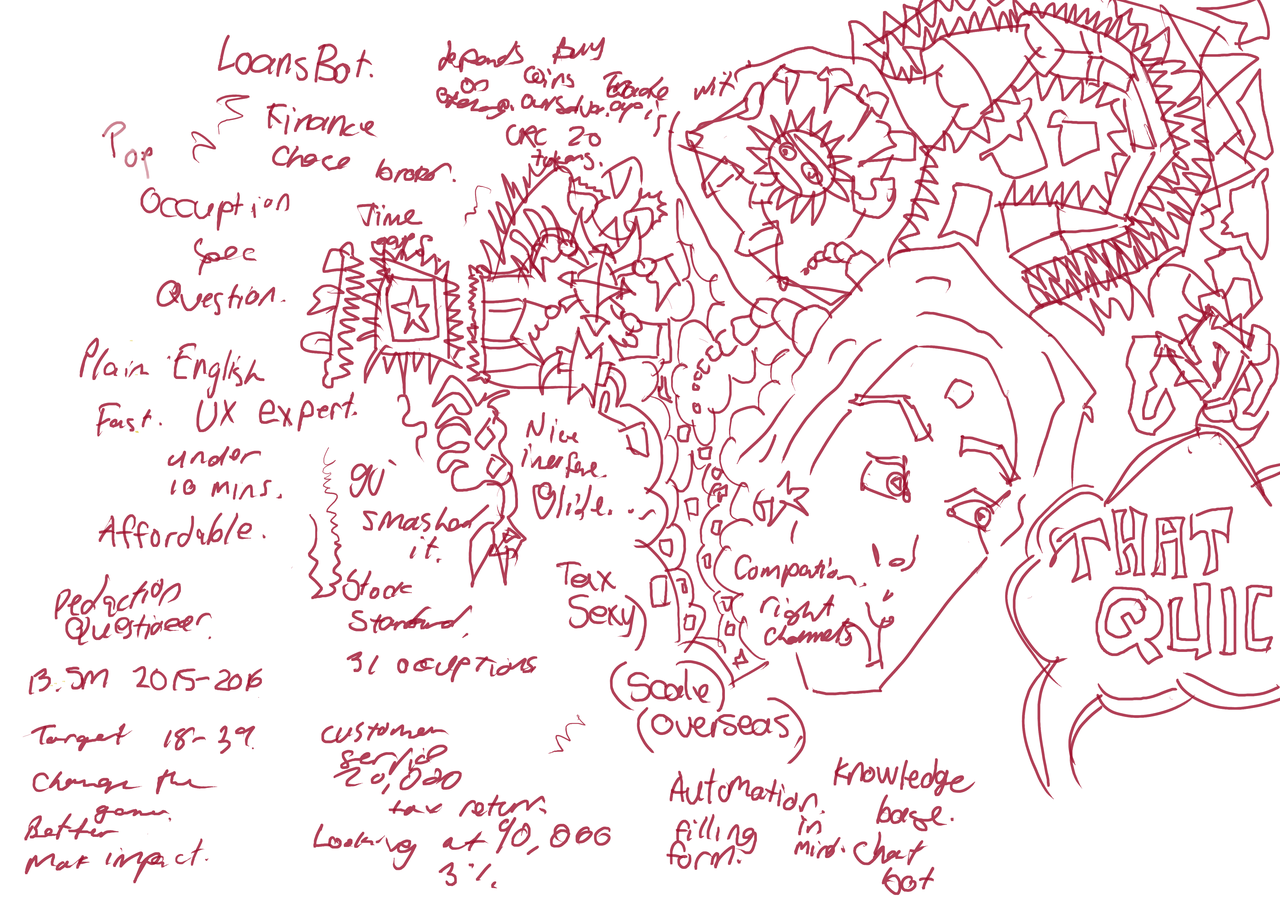 LoansBot.
Finance
Choce broker.
depends Buy
on Coins Trade with
exchange. ourselve. apis
ERC 20
tokens.
Pop
Occuption
Spec
Question.
Time
Plain English
Fast. UX expert.
under
10 mins.
Affordable.
Pedaction
Questioneer.
13.5M 2015-2016
Target 18-39.
Change the
game.
Better
Max impact.
gui
smashed
it.
Stock
Standard,
31 occuptions
customer
service
20,000
tax return.
Looking at 90,000
3%
Nice
inerface.
Glide..
Tax
Sexy)
(Scale)
(overseas)
Compation.
right
channels
Automation.
filling
form.
in
mind.
Knowledge
base.
Chat
bot
THAT
QUIC